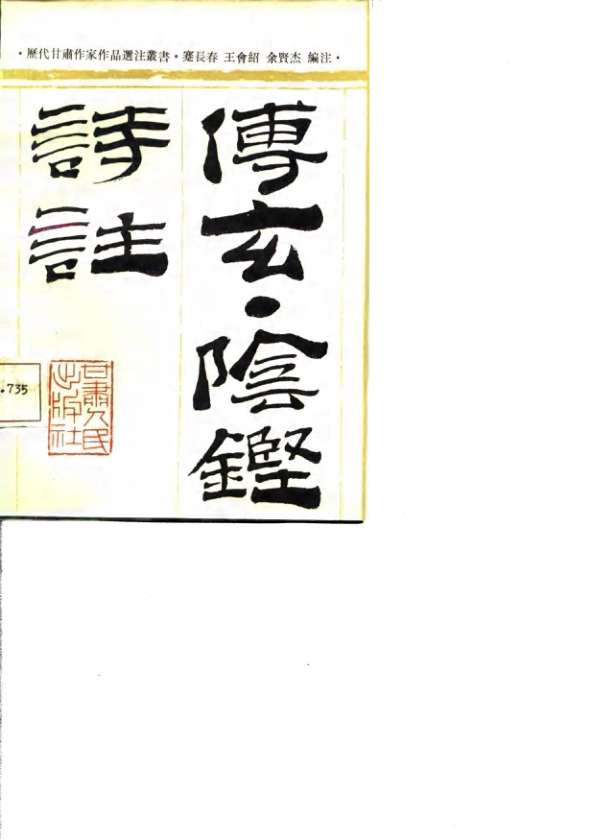 ·歷代甘肅作家作品選注叢書·蹇長春 王會紹 余賢杰 編注·
傅玄·陰鏗
詩註
.735
甘肅人民
出版社